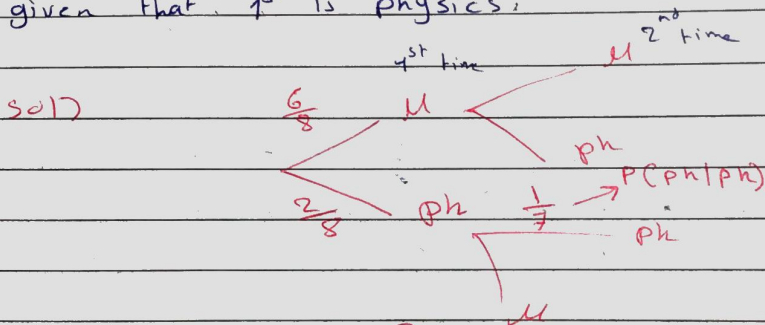 given that 1st is physics.
1st time M 2nd time
sol) 6/8 M
ph
2/8 ph 1/7 → P(ph|ph)
ph
M